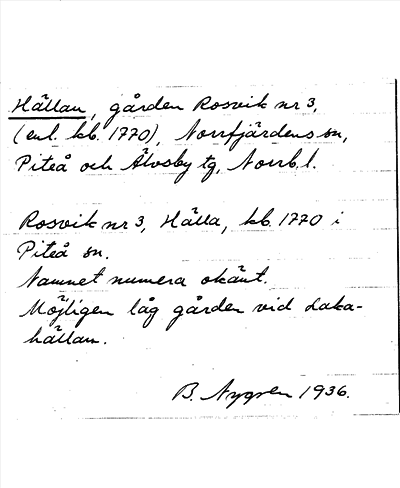 Hällan, gården Rosvik nr 3,
(enl. kb. 1770), Norrfjärdens sn,
Piteå och Älvsby tg, Norrb. l.
Rosvik nr 3, Hälla, kb. 1770 i
Piteå sn.
Namnet numera okänt.
Möjligen låg gården vid Laka-
hällan.
B. Nygren 1936.